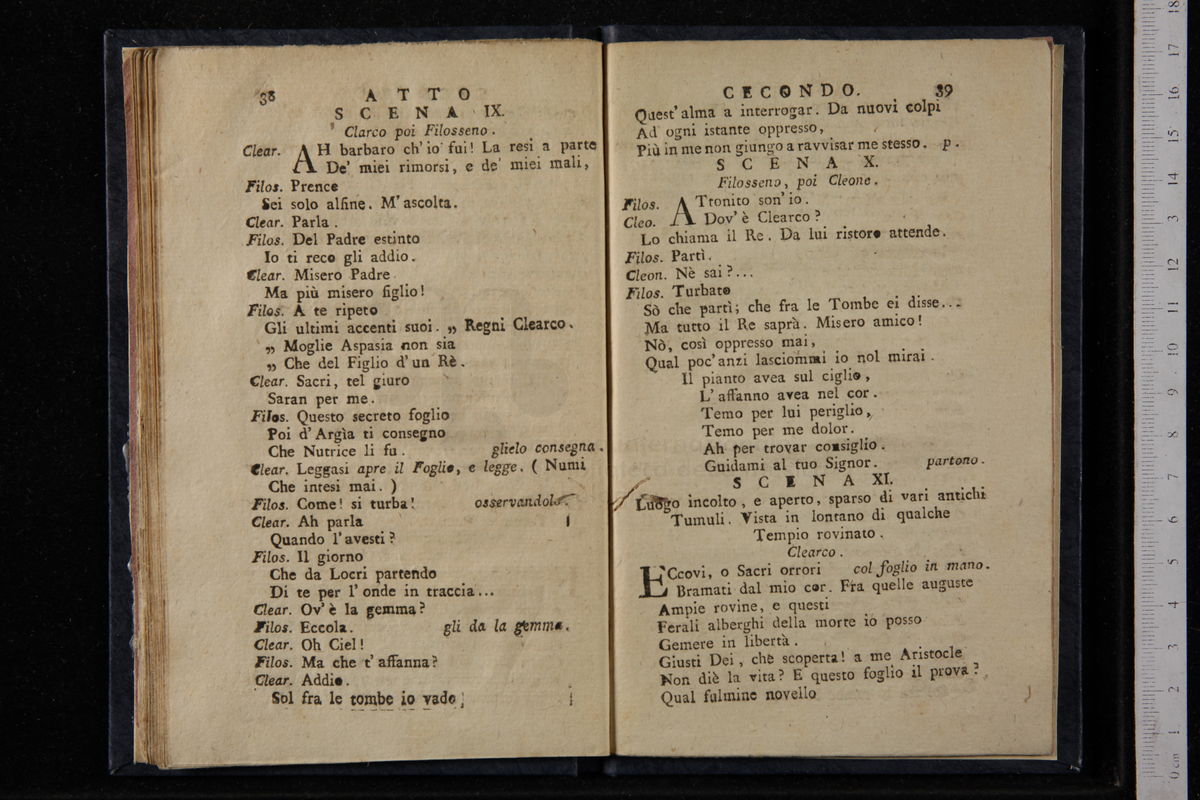 38 A T T O
S C E N A IX.
Clarco poi Filosseno.
Clear. AH barbaro ch'io fui! La resi a parte
De' miei rimorsi, e de' miei mali,
Filos. Prence
Sei solo alfine. M'ascolta.
Clear. Parla.
Filos. Del Padre estinto
Io ti reco gli addio.
Clear. Misero Padre
Ma più misero figlio!
Filos. A te ripeto
Gli ultimi accenti suoi. „ Regni Clearco.
„ Moglie Aspasia non sia
„ Che del Figlio d'un Rè.
Clear. Sacri, tel giuro
Saran per me.
Filos. Questo secreto foglio
Poi d'Argìa ti consegno
Che Nutrice li fu. glielo consegna.
Clear. Leggasi apre il Foglio, e legge. ( Numi
Che intesi mai. )
Filos. Come! si turba! osservandolo.
Clear. Ah parla
Quando l'avesti?
Filos. Il giorno
Che da Locri partendo
Di te per l'onde in traccia...
Clear. Ov'è la gemma?
Filos. Eccola. gli da la gemma.
Clear. Oh Ciel!
Filos. Ma che t'affanna?
Clear. Addio.
Sol fra le tombe io vado;
CECONDO. 39
Quest'alma a interrogar. Da nuovi colpi
Ad ogni istante oppresso,
Più in me non giungo a ravvisar me stesso. p.
S C E N A X.
Filosseno, poi Cleone.
Filos. ATtonito son'io.
Cleo. Dov'è Clearco?
Lo chiama il Re. Da lui ristoro attende.
Filos. Partì.
Cleon. Nè sai?...
Filos. Turbato
Sò che partì; che fra le Tombe ei disse...
Ma tutto il Re saprà. Misero amico!
Nò, così oppresso mai,
Qual poc'anzi lasciommi io nol mirai.
Il pianto avea sul ciglio,
L'affanno avea nel cor.
Temo per lui periglio,
Temo per me dolor.
Ah per trovar consiglio.
Guidami al tuo Signor. partono.
S C E N A XI.
Luogo incolto, e aperto, sparso di vari antichi
Tumuli. Vista in lontano di qualche
Tempio rovinato.
Clearco.
ECcovi, o Sacri orrori col foglio in mano.
Bramati dal mio cor. Fra quelle auguste
Ampie rovine, e questi
Ferali alberghi della morte io posso
Gemere in libertà.
Giusti Dei, che scoperta! a me Aristocle
Non diè la vita? E questo foglio il prova?
Qual fulmine novello
18
17
16
15
14
13
12
11
10
9
8
7
6
5
4
3
2
1
0 cm